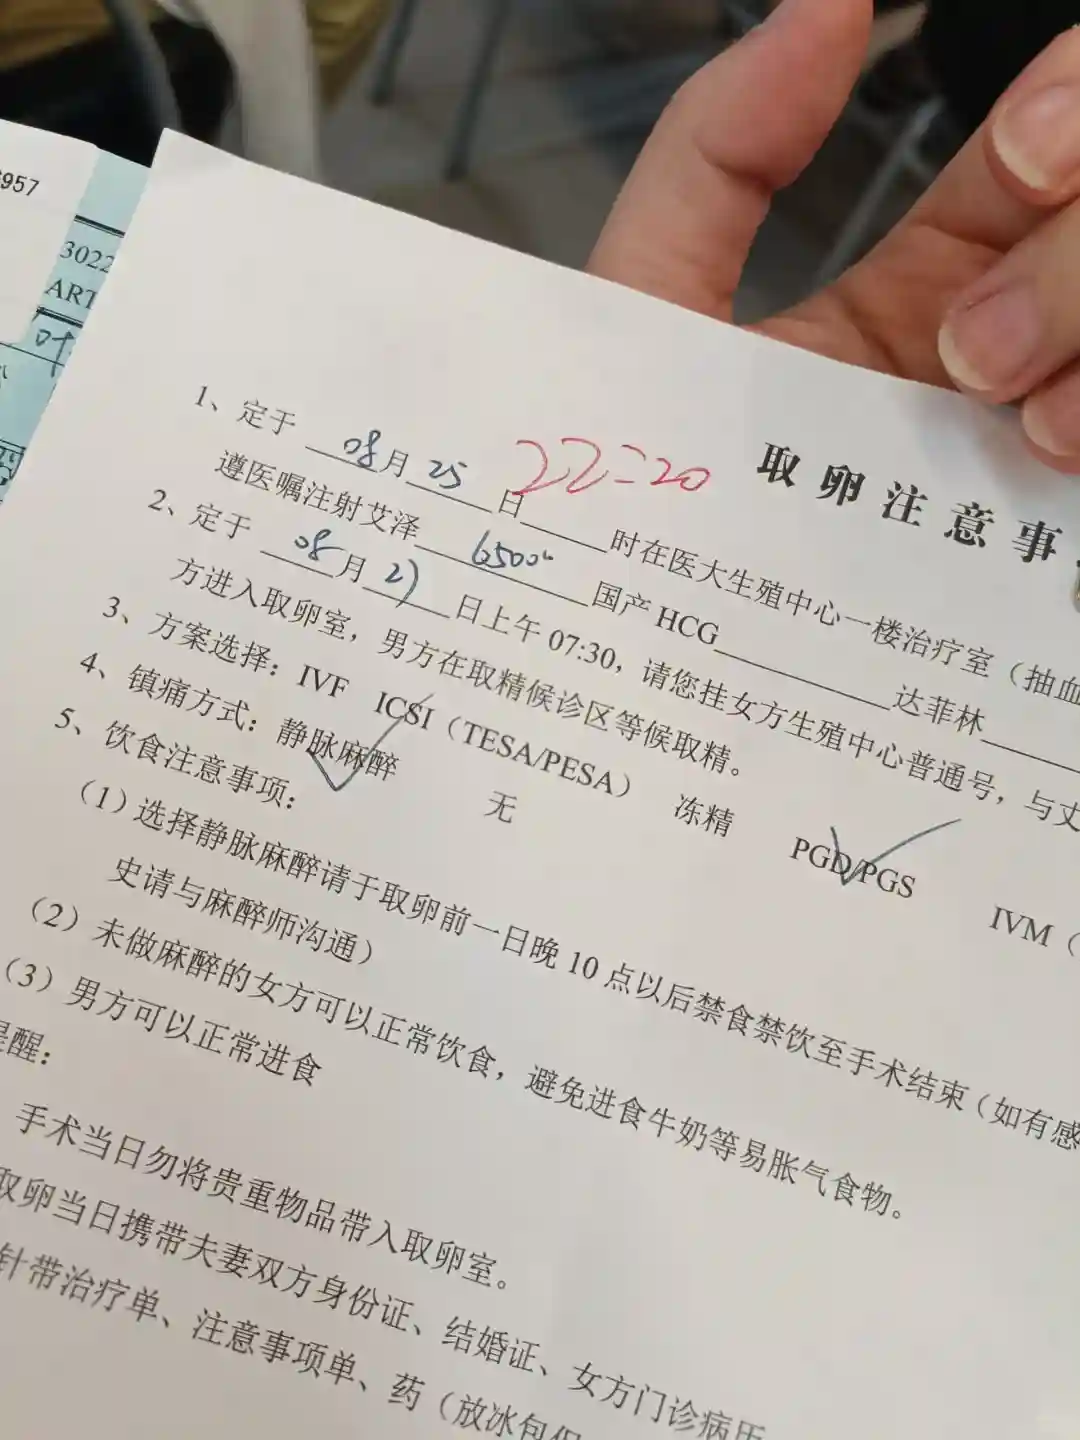 3957
3022
ART
取卵注意事
1、定于 08月25日 22:20 时在医大生殖中心一楼治疗室（抽血
遵医嘱注射艾泽 6500u 国产 HCG 达菲林
2、定于 08月27日上午 07:30，请您挂女方生殖中心普通号，与丈
方进入取卵室，男方在取精候诊区等候取精。
3、方案选择：IVF ICSI（TESA/PESA） 冻精 PGD/PGS IVM（
4、镇痛方式：静脉麻醉 无
5、饮食注意事项：
（1）选择静脉麻醉请于取卵前一日晚 10 点以后禁食禁饮至手术结束（如有感
史请与麻醉师沟通）
（2）未做麻醉的女方可以正常饮食，避免进食牛奶等易胀气食物。
（3）男方可以正常进食
醒：
手术当日勿将贵重物品带入取卵室。
取卵当日携带夫妻双方身份证、结婚证、女方门诊病历
针带治疗单、注意事项单、药（放冰包保